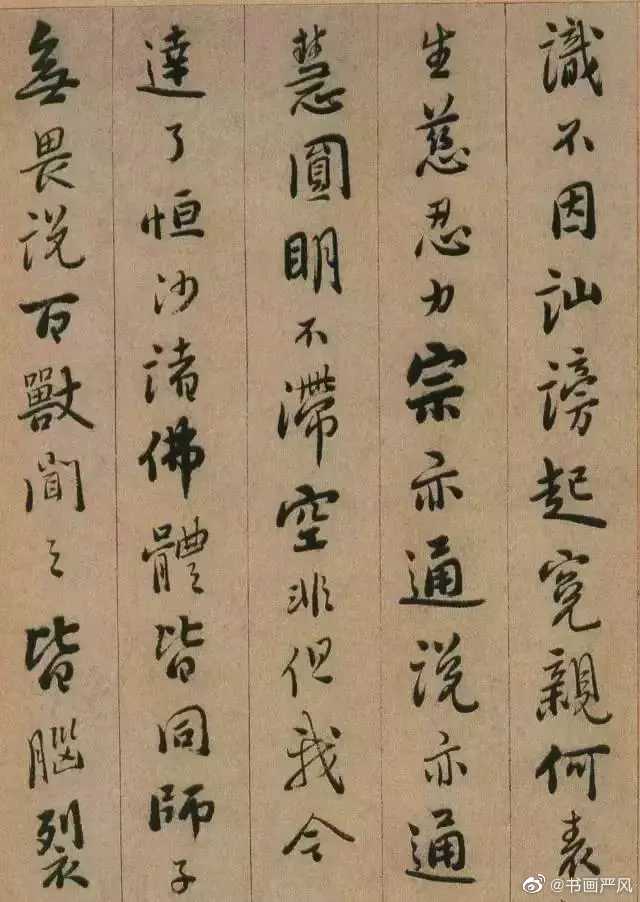 識不因訕謗起冤親何表
生慈忍力宗亦通説亦通
慧圓明不滯空非但我今
達了恒沙諸佛體皆同師子
無畏説百獸聞之皆腦裂
@书画严风